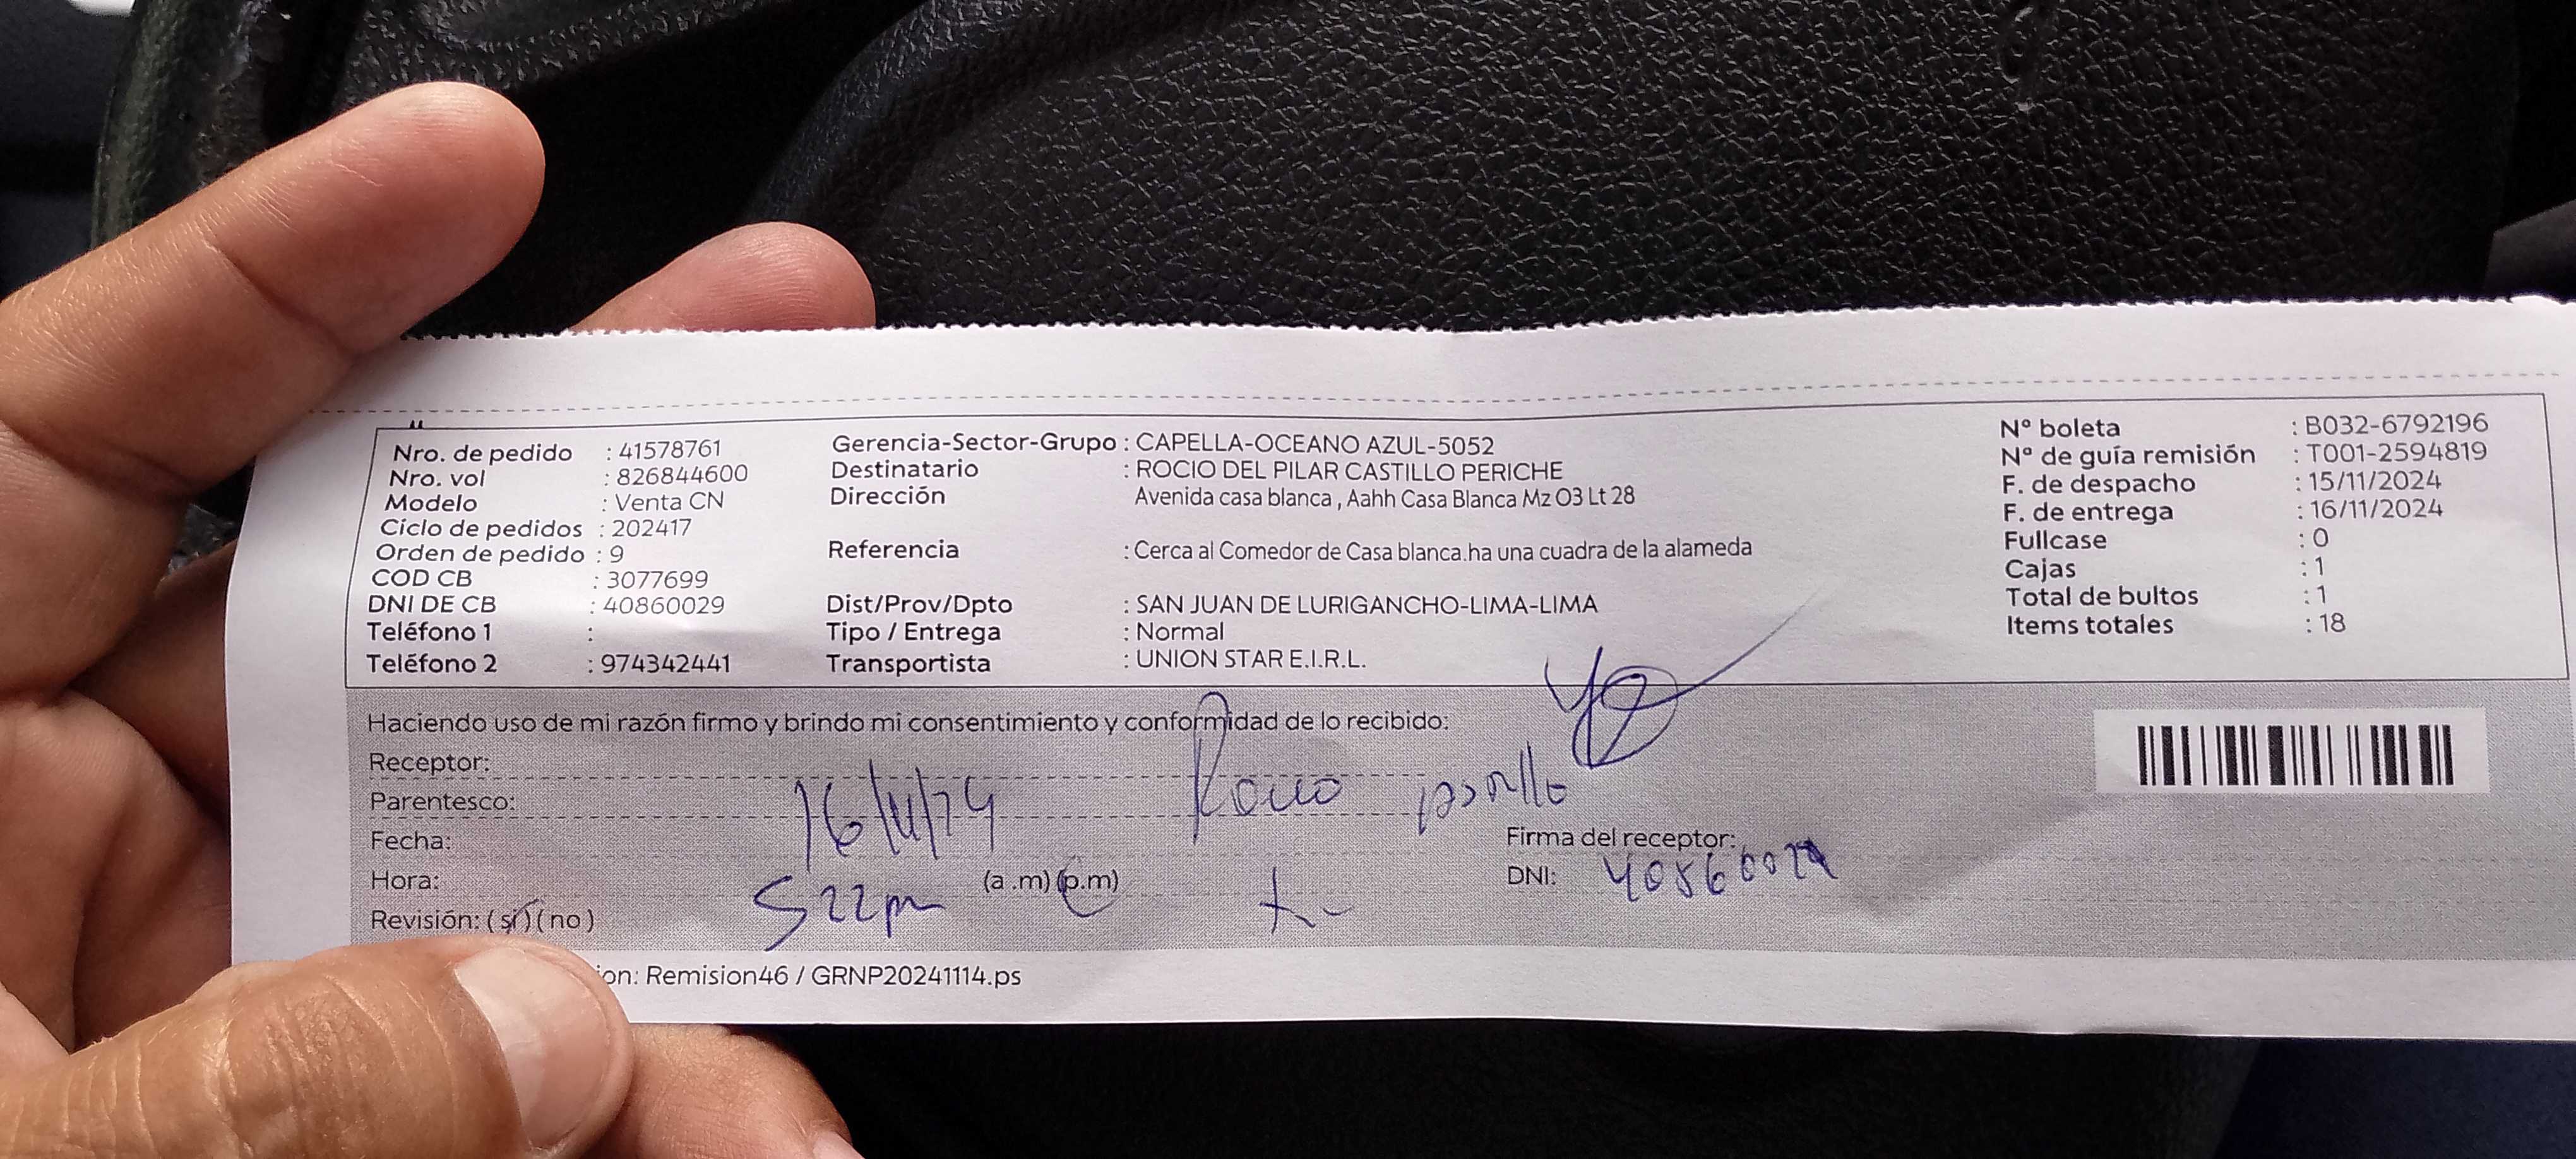 Nro. de pedido : 41578761
Nro. vol : 826844600
Modelo : Venta CN
Ciclo de pedidos : 202417
Orden de pedido : 9
COD CB : 3077699
DNI DE CB : 40860029
Teléfono 1 :
Teléfono 2 : 974342441
Gerencia-Sector-Grupo : CAPELLA-OCEANO AZUL-5052
Destinatario : ROCIO DEL PILAR CASTILLO PERICHE
Dirección Avenida casa blanca , Aahh Casa Blanca Mz O3 Lt 28
Referencia : Cerca al Comedor de Casa blanca.ha una cuadra de la alameda
Dist/Prov/Dpto : SAN JUAN DE LURIGANCHO-LIMA-LIMA
Tipo / Entrega : Normal
Transportista : UNION STAR E.I.R.L.
Nº boleta : B032-6792196
Nº de guía remisión : T001-2594819
F. de despacho : 15/11/2024
F. de entrega : 16/11/2024
Fullcase : 0
Cajas : 1
Total de bultos : 1
Items totales : 18
Haciendo uso de mi razón firmo y brindo mi consentimiento y conformidad de lo recibido:
Receptor:
Parentesco: Rocio
Fecha: 16/11/24
Hora: 522pm (a .m) (p.m)
Revisión: ( sí ) ( no )
Firma del receptor:
DNI: 40860029
on: Remision46 / GRNP20241114.ps